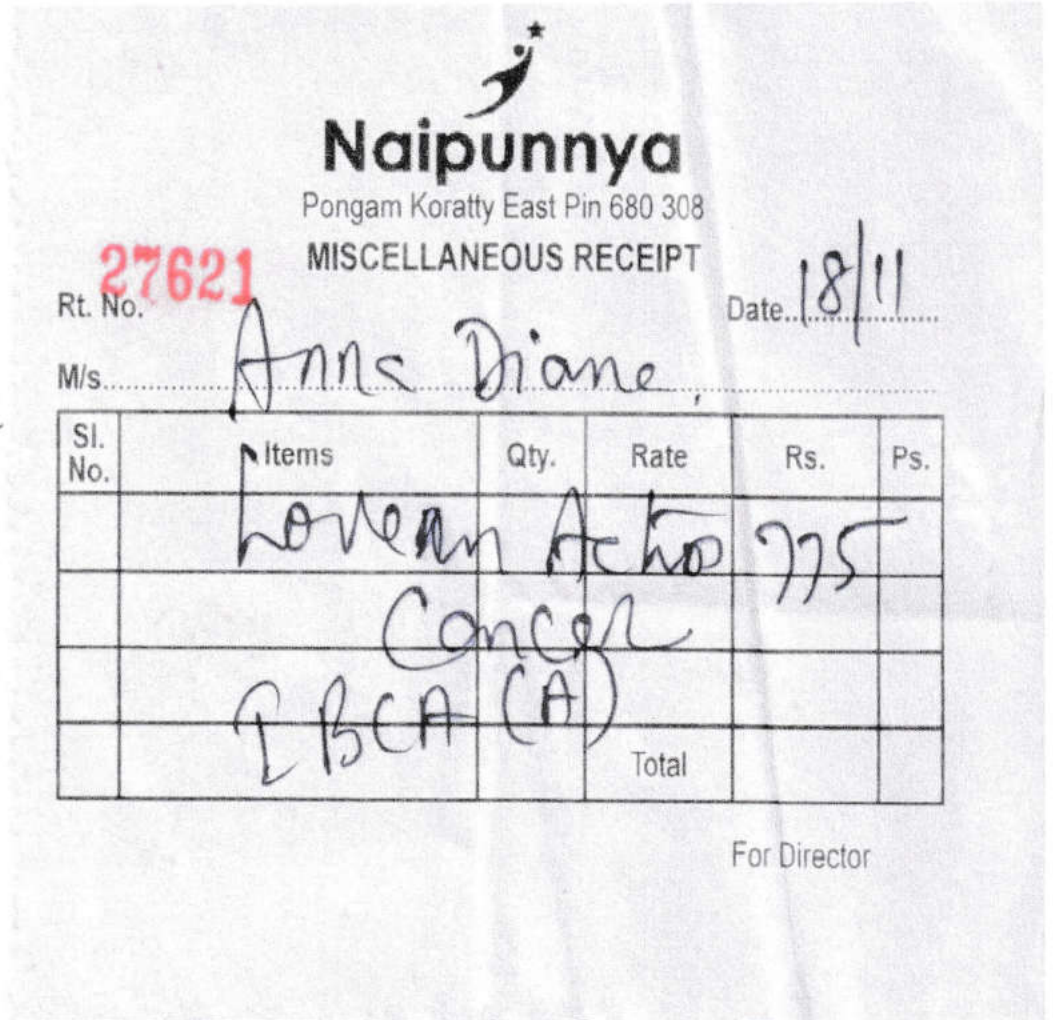 Naipunnya
Pongam Koratty East Pin 680 308
MISCELLANEOUS RECEIPT
Rt. No. 27621
Date 18/11
M/s. Anna Diane
Sl. No. Items Qty. Rate Rs. Ps.
775
Cancer
I BCA (A)
Total
For Director